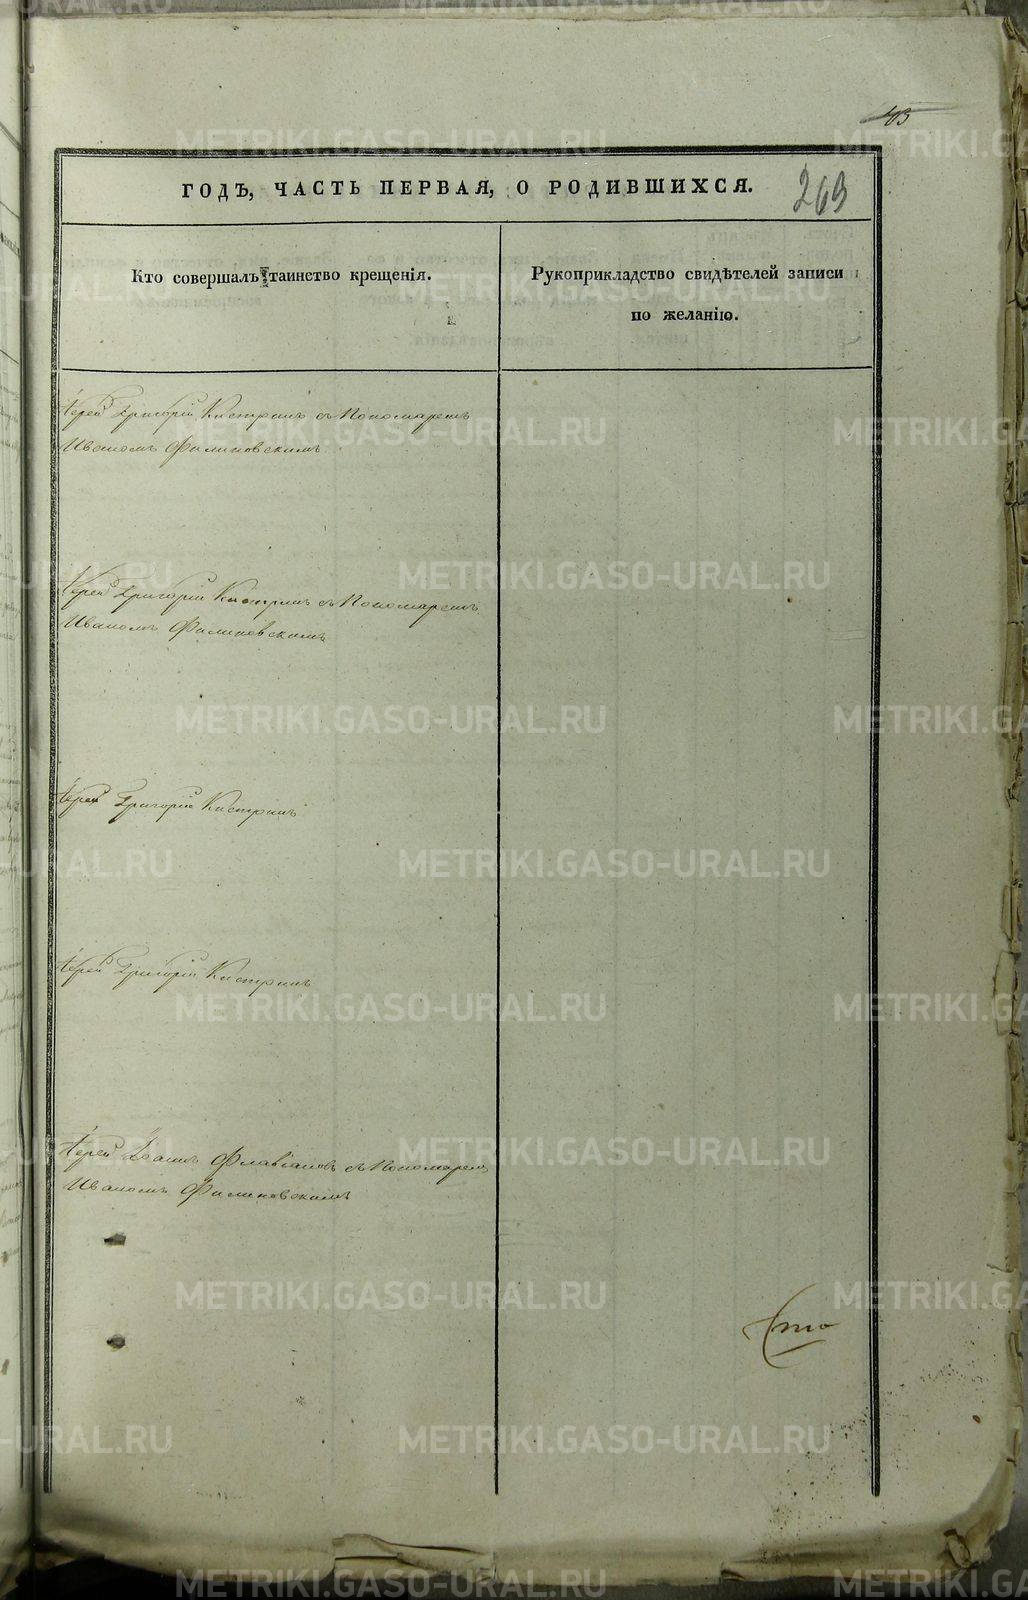 403
269
ГОДЪ, ЧАСТЬ ПЕРВАЯ, О РОДИВШИХСЯ.
Кто совершалъ таинство крещенія.
Рукоприкладство свидѣтелей записи
по желанію.
Іерей Григорій Кистринъ съ Пономаремъ
Иваномъ Филиповскимъ
Іерей Григорій Кистринъ съ Пономаремъ
Иваномъ Филиповскимъ
Іерей Григорій Кистринъ
Іерей Григорій Кистринъ
Іерей Іоаннъ Флавіановъ съ Пономаремъ
Иваномъ Филиповскимъ
Сто
METRIKI.GASO-URAL.RU